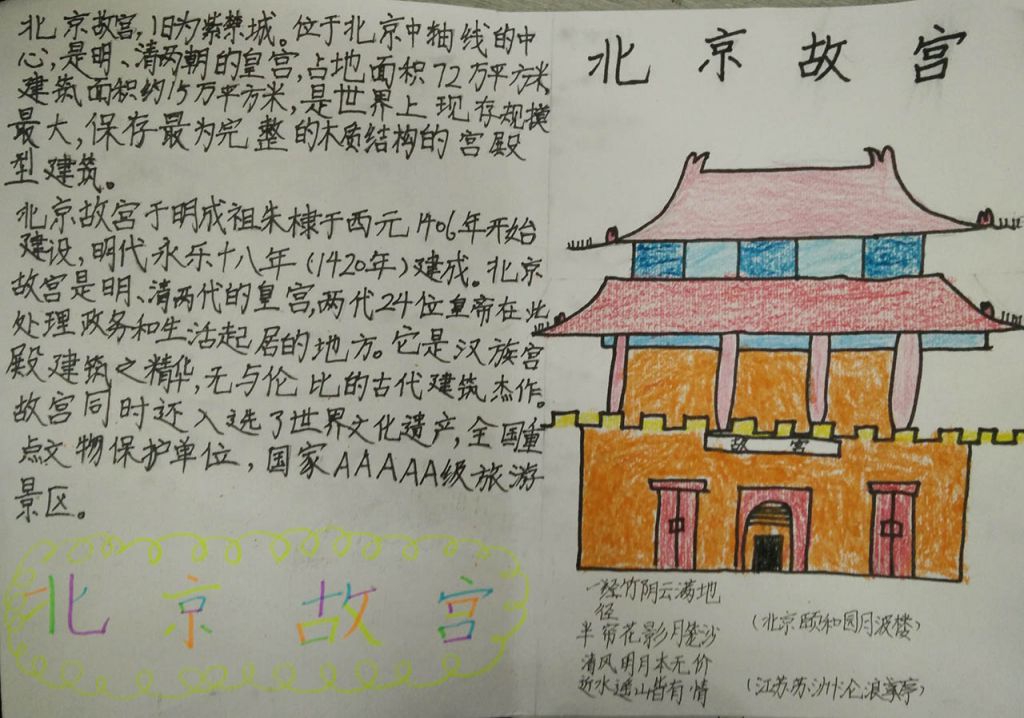 北京故宫,旧为紫禁城。位于北京中轴线的中
心,是明、清两朝的皇宫,占地面积72万平方米
建筑面积约15万平方米,是世界上现存规模
最大,保存最为完整的木质结构的宫殿
型建筑。
北京故宫于明成祖朱棣于西元1406年开始
建设,明代永乐十八年(1420年)建成。北京
故宫是明、清两代的皇宫,两代24位皇帝在此
处理政务和生活起居的地方。它是汉族宫
殿建筑之精华,无与伦比的古代建筑杰作。
故宫同时还入选了世界文化遗产,全国重
点文物保护单位,国家AAAAA级旅游
景区。
北京故宫
北京故宫
故宫
一经竹阴云满地
径
半帘花影月笼沙
(北京颐和园月波楼)
清风明月本无价
近水遥山皆有情
(江苏苏州沧浪亭)